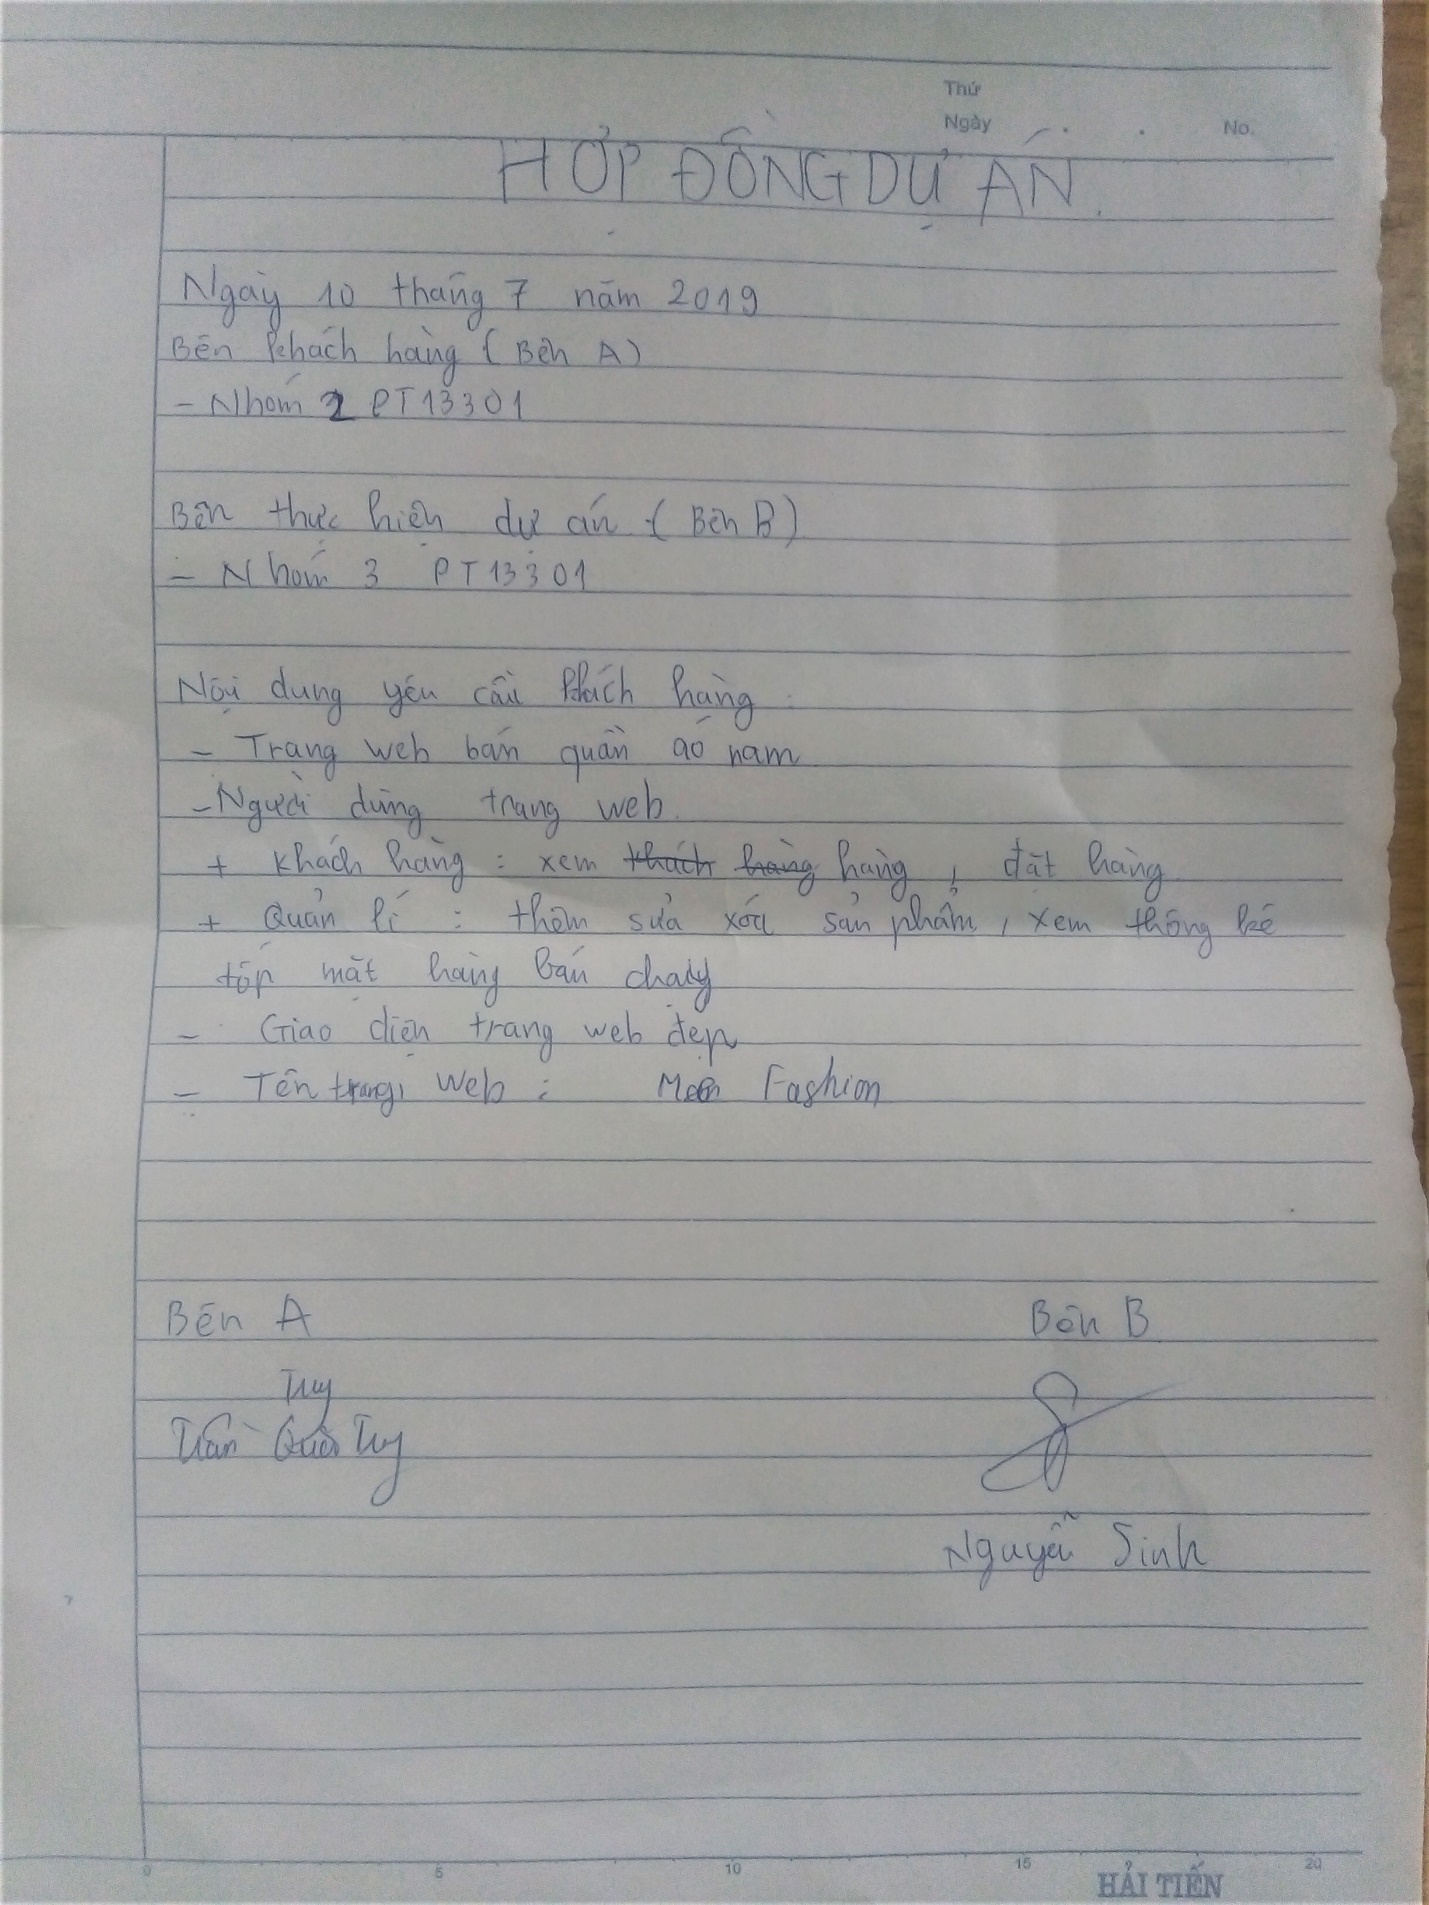 Thứ
Ngày . . No.
HỢP ĐỒNG DỰ ÁN.
Ngày 10 tháng 7 năm 2019
Bên khách hàng (Bên A)
- Nhóm 2 PT13301
Bên thực hiện dự án (Bên B)
- Nhóm 3 PT13301
Nội dung yêu cầu khách hàng :
- Trang web bán quần áo nam
- Người dùng trang web.
+ Khách hàng : xem khách hàng hàng , đặt hàng
+ Quản lí : thêm sửa xóa sản phẩm , xem thống kê
tốp mặt hàng bán chạy
- Giao diện trang web đẹp
- Tên trang web : Men Fashion
Bên A
Bên B
Tuy
Trần Tuy
Nguyễn Sinh
0 5 10 15 20
HẢI TIẾN